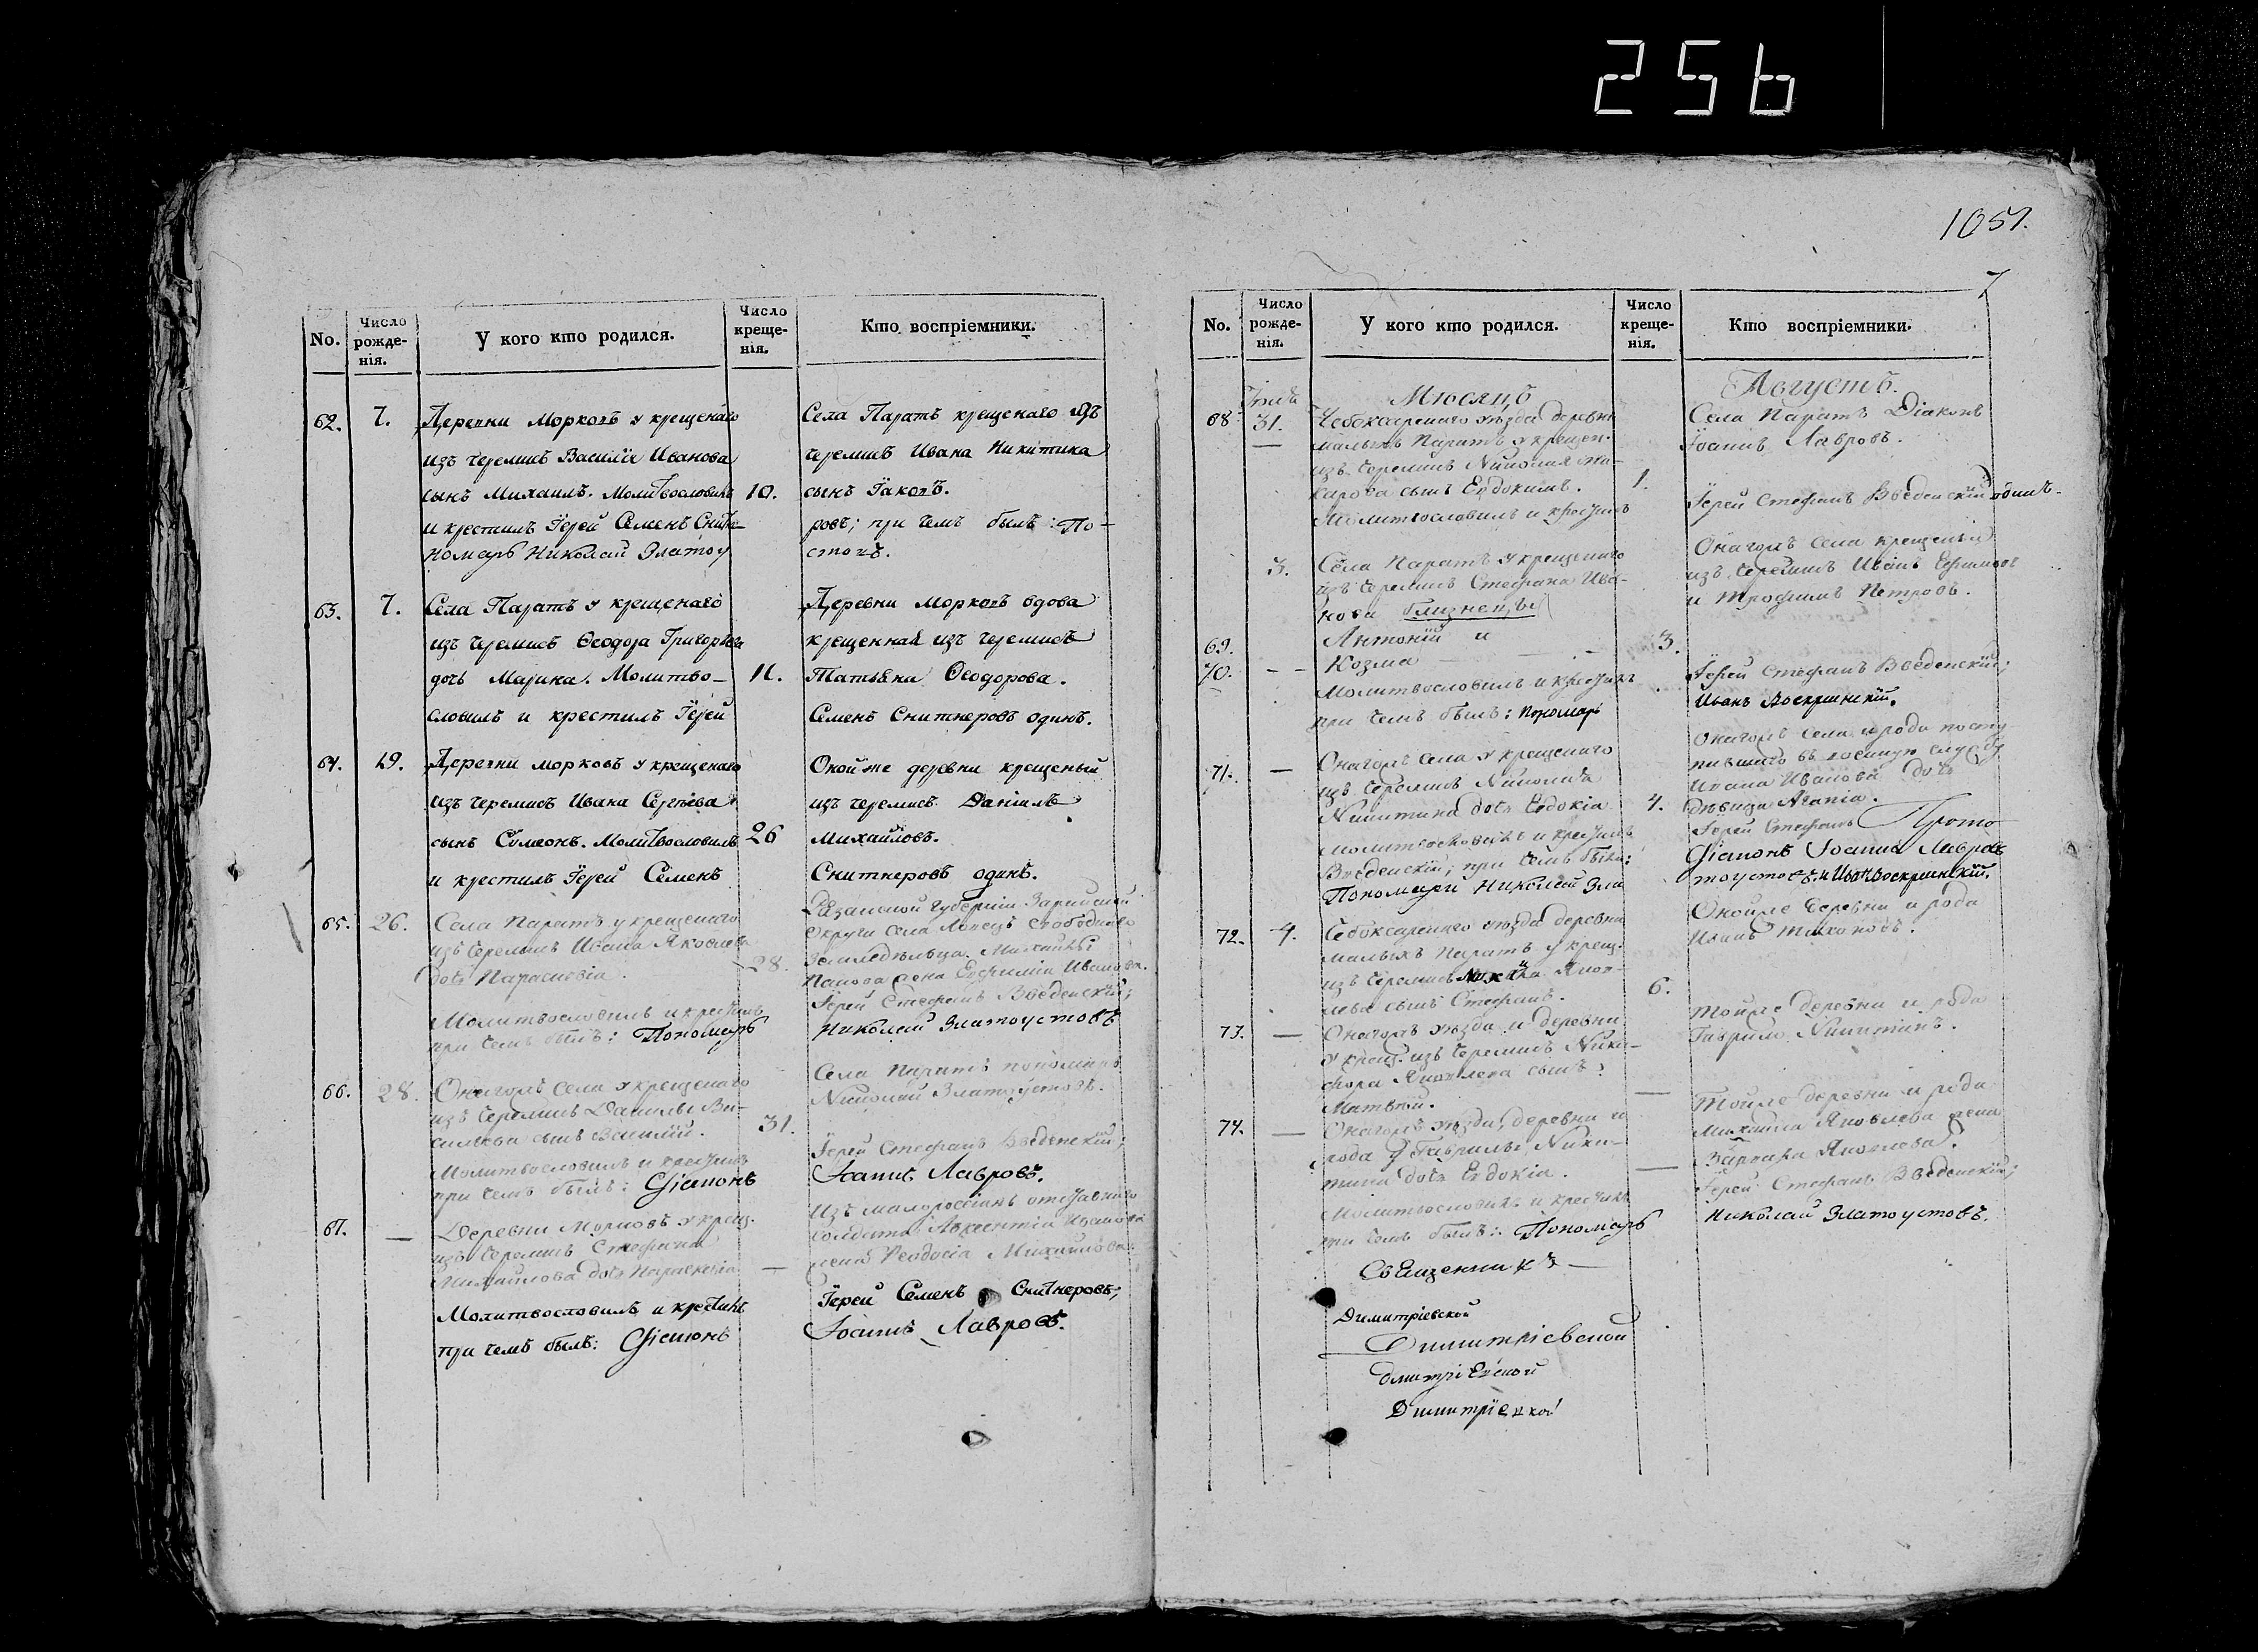 256
1051.
7
No.
Число рожде- нія.
У кого кто родился.
Число креще- нія.
Кто воспріемники.
62.
7.
Деревни Морковъ у крещенаго
изъ черемисъ Василія Иванова
сынъ Михаилъ. Молитвословилъ
и крестилъ Іерей Семенъ Снит-
номарь Николай Златоу
10.
Села Паратъ крещенаго изъ
черемисъ Ивана Никитина
сынъ Іаковъ.
ровъ; при чемъ былъ: По-
стовъ.
63.
7.
Села Паратъ у крещенаго
изъ черемисъ Ѳеодора Григорьева
дочь Марина. Молитво-
словилъ и крестилъ Іерей
11.
Деревни Морковъ вдова
крещенная изъ черемисъ
Татьяна Ѳеодорова.
Семенъ Снитнеровъ одинъ.
64.
19.
Деревни Морковъ у крещенаго
изъ черемисъ Ивана Сергѣева
сынъ Сѵмеонъ. Молитвословилъ
и крестилъ Іерей Семенъ
26
Оной же деревни крещеный
изъ черемисъ Даніилъ
Михайловъ.
Снитнеровъ одинъ.
65.
26.
Села Паратъ у крещенаго
изъ черемисъ Ивана Яковлева
дочь Параскевія.
Молитвословилъ и крестилъ
при чемъ былъ: Пономарь
28.
Казанской Губерніи
округи села свободнаго
Земледѣльца Михайлы
жена Евфимія Иванова.
Іерей Стефанъ Введенскій;
Николай Златоустовъ
66.
28.
Онагожъ села у крещенаго
изъ черемисъ Данилы Ва-
сильева сынъ Василій.
Молитвословилъ и крестилъ
при чемъ былъ: Діаконъ
31.
Села Паратъ пономарь
Николай Златоустовъ.
Іерей Стефанъ Введенскій;
Іоаннъ Лавровъ.
67.
—
Деревни Морковъ у крещ.
изъ черемисъ Стефана
Михайлова дочь Параскевія
Молитвословилъ и крестилъ
при чемъ былъ: Діаконъ
—
Изъ малороссіянъ отставнаго
солдата Авксентія Иванова
жена Ѳеодосія Михайлова.
Іерей Семенъ Снитнеровъ;
Іоаннъ Лавровъ.
No.
Число рожде- нія.
У кого кто родился.
Число креще- нія.
Кто воспріемники.
Мѣсяцъ
Августъ.
68
31.
Чебоксарскаго уѣзда деревни
малыхъ Паратъ у крещен.
изъ черемисъ Николая Ма-
карова сынъ Евдокимъ.
Молитвословилъ и крестилъ
1.
Села Паратъ Діаконъ
Іоаннъ Лавровъ.
Іерей Стефанъ Введенскій одинъ.
3.
Села Паратъ у крещенаго
изъ черемисъ Стефана Ива-
нова близнецы
69.
Антоній и
70.
— —
Козма
Молитвословилъ и крестилъ
при чемъ былъ: Пономарь
3.
Онагожъ села крещеный
изъ черемисъ Иванъ Ефимовъ
и Трофимъ Петровъ.
Іерей Стефанъ Введенскій;
Иванъ Воскресенскій.
71.
—
Онагожъ села у крещенаго
изъ черемисъ Николая
Никитина дочь Евдокія
молитвословилъ и крестилъ
Введенскій; при чемъ были:
Пономари Николай Зла
4.
Онагожъ села и рода посту
пившаго въ военную службу
Ивана Иванова дочь
дѣвица Агапія.
Іерей Стефанъ Прото
Діаконъ Іоаннъ Лавровъ
тоустовъ и Иванъ Воскресенскій.
72.
4.
Чебоксарскаго уѣзда деревни
малыхъ Паратъ у крещ.
изъ черемисъ Яков-
лева сынъ Стефанъ.
6.
Оной же деревни и рода
Иванъ Тихоновъ.
73.
—
Онагожъ уѣзда и деревни
у крещ. изъ черемисъ Ники-
фора Яковлева сынъ
Матвей.
—
Той же деревни и рода
Гаврило Никитинъ.
74.
—
Онагожъ уѣзда, деревни и
рода у Гаврилы Ники-
тина дочь Евдокія.
Молитвословилъ и крестилъ
при чемъ былъ: Пономарь
—
Той же деревни и рода
Михаила Яковлева жена
Варвара Яковлева.
Іерей Стефанъ Введенскій;
Николай Златоустовъ.
Священникъ —
Димитріевской
Димитріевской
Дмитріевской